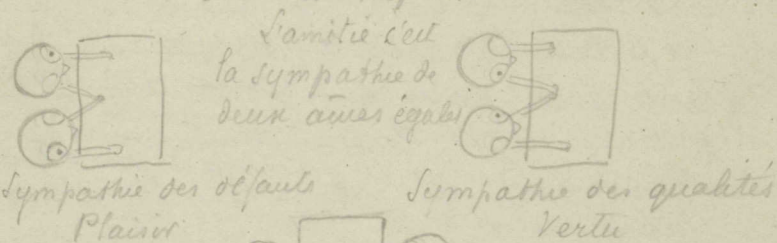 L'amitié c'est
la sympathie de
deux âmes égales
Sympathie des défauts
Plaisir
Sympathie des qualités
Vertu